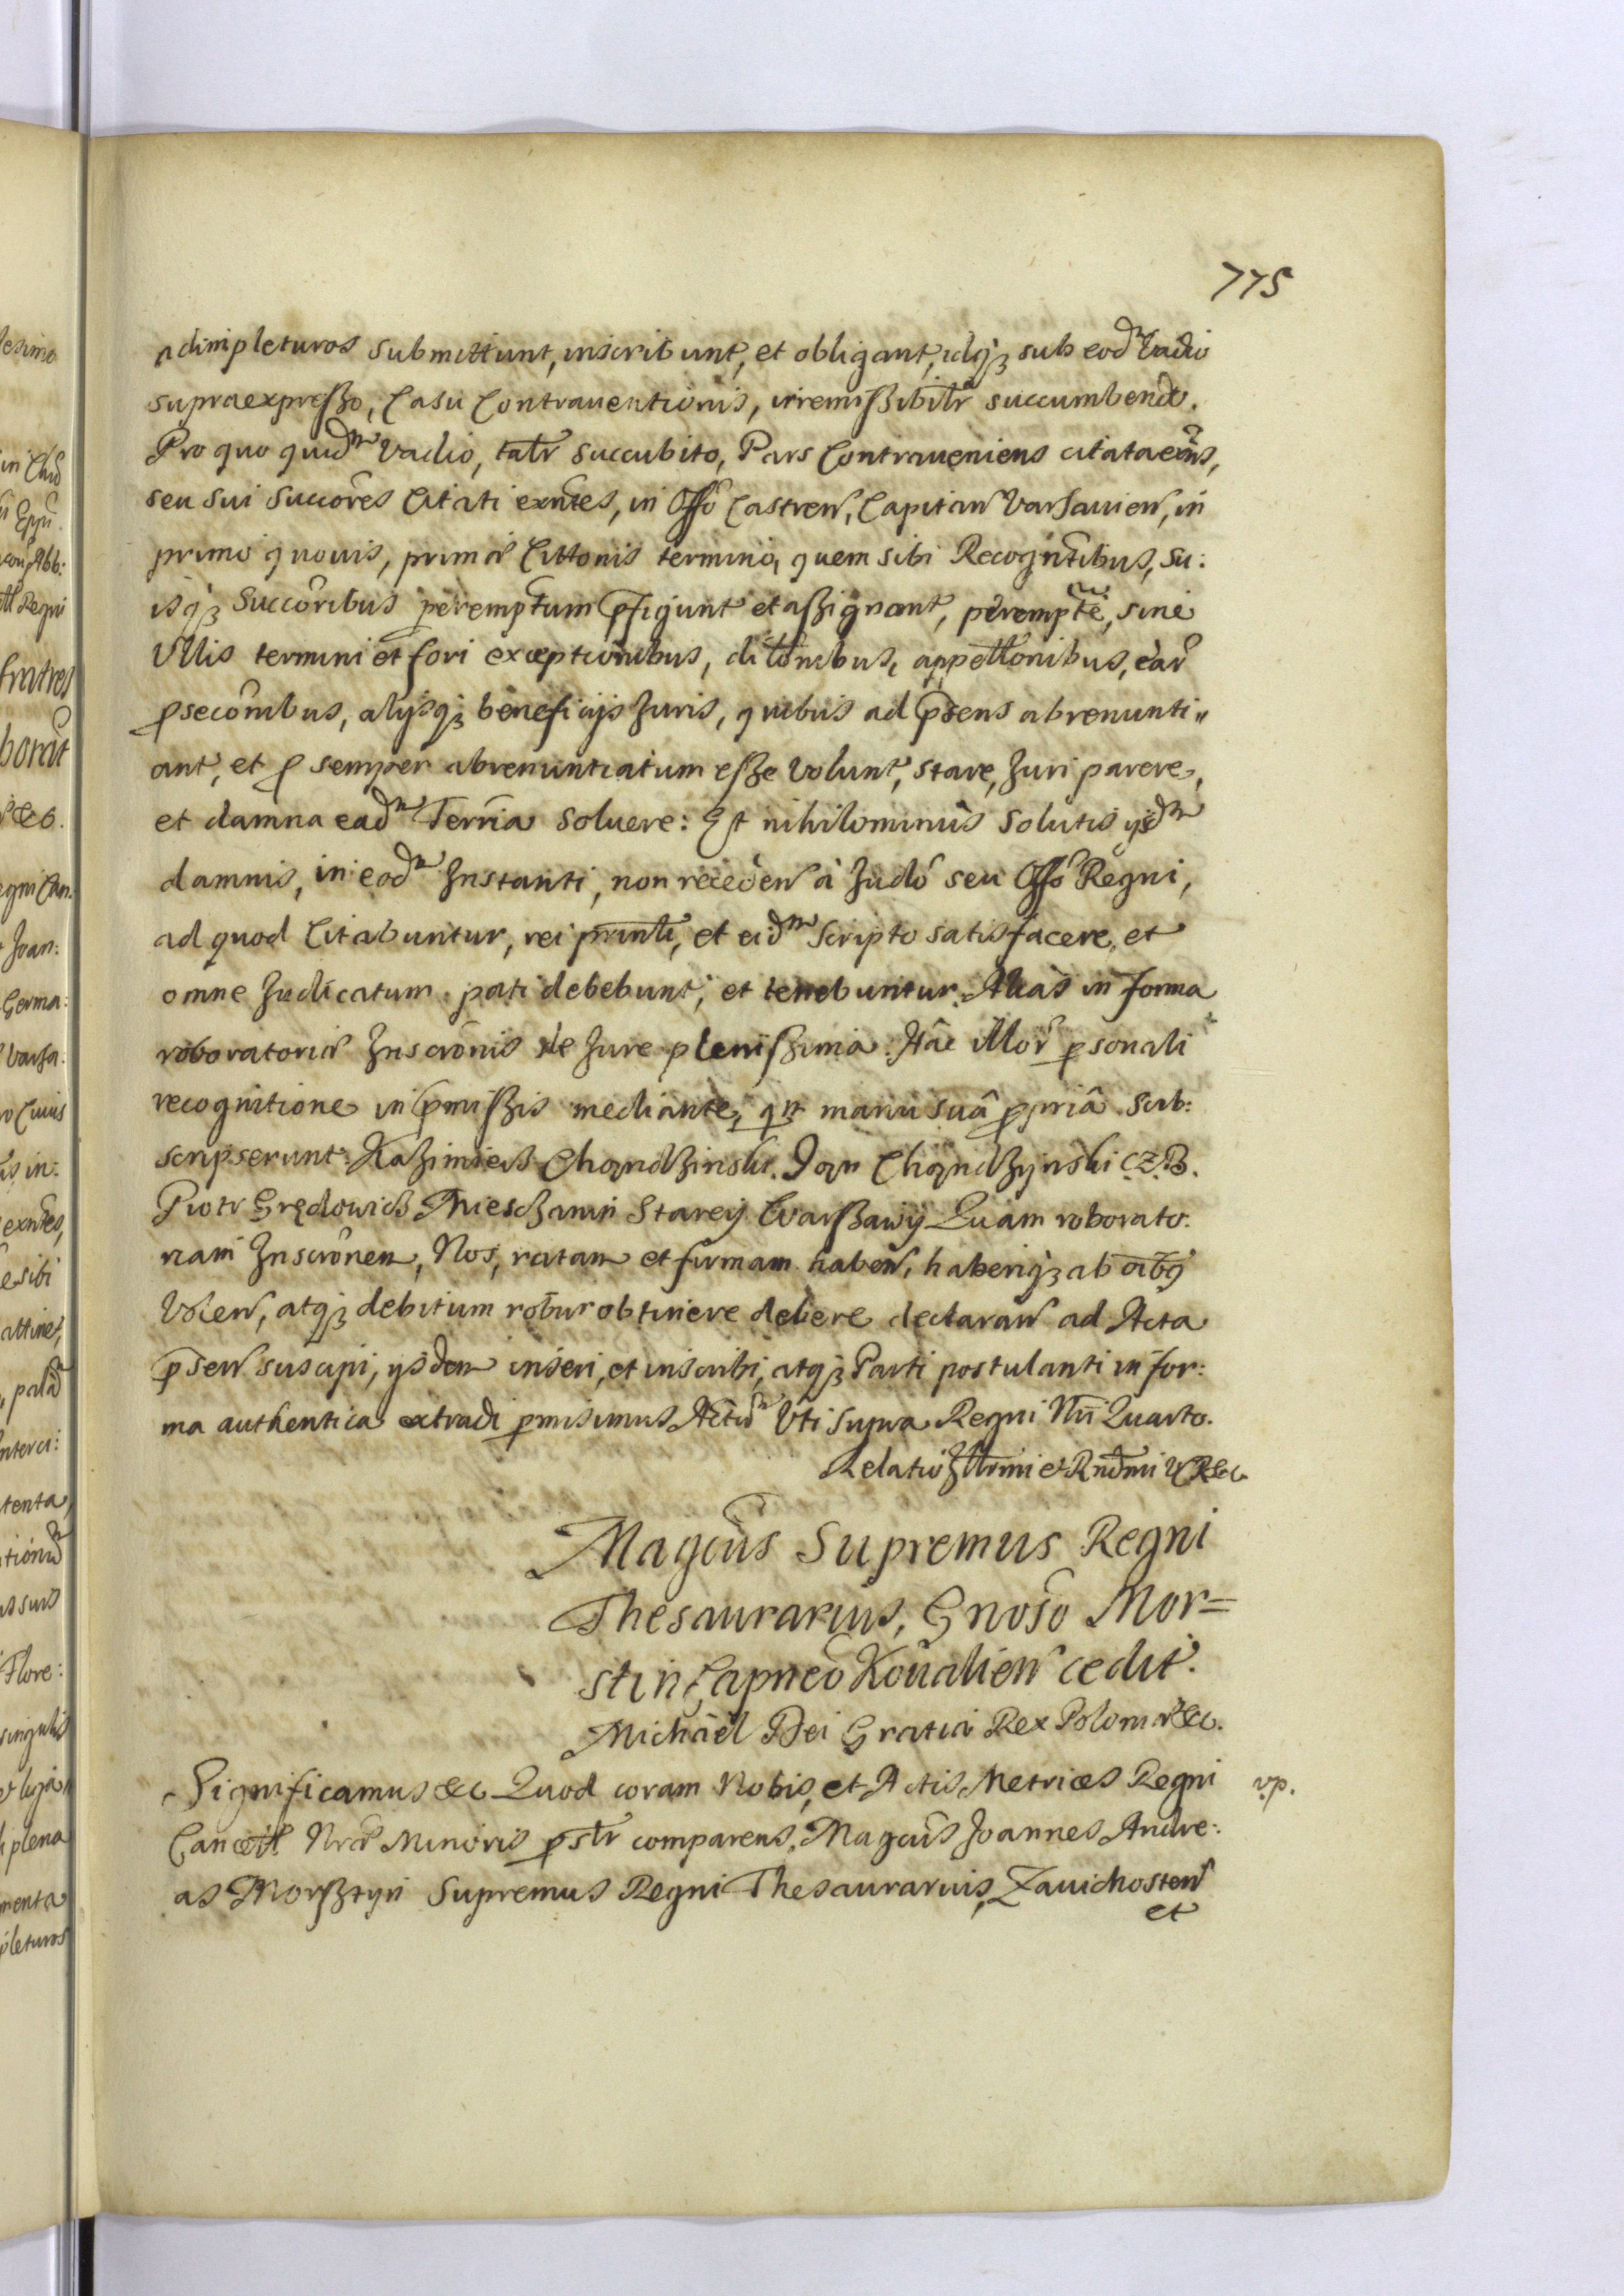 775
adimpleturos submittunt, inscribunt, et obligant, idqȝ sub eodm Vadio
supraexpreszo, Casu Contrauentionis, irremiszibilr succumbendo.
Pro quo quidm Vadio, talr succubito, Pars Contraueniens citata exns,
seu sui Succores Citati exntes, in Offo Castren, Capitan Varsauien, in
primo quouis, primæ Cittonis termino, quem sibi Recognntibus, su:
isqȝ Succoribus peremptum pfigunt et aszignant, perempte, sine
Vllis termini et fori exceptionibus, diltonibus, appelltonibus, ear
psecombus, alysqȝ beneficijs Juris, quibus ad psens abrenunti"
ant, et p semper abrenuntiatum esze Volunt, stare, Juri parere,
et damna eadm Terria soluere: Et nihilominus solutis ysdm
damnis, in eodm Instanti, non receden à Judo seu Offo Regni,
ad quod Citabuntur, rei prinli, et eidm Scripto satisfacere, et
omne Judicatum pati debebunt, et tenebuntur. Alias in forma
roboratoriæ Inscronis de Jure pleniszima. Hac illor psonali
recognitione in pmiszis mediante, qui manu suâ ppriâ sub:
scripserunt. Kazimierz Chądzinski. Jan Chądzynski C.Z.B.
Piotr Grędowicz Mieszczanin Starey Warszawy Quam roborato:
riam Inscronem, Nos, ratam et firmam haben, haberiqȝ ab oibꝰ
Volen, atqȝ debitum robur obtinere debere declaran ad Acta
psen suscipi, ysdem inseri, et inscribi, atqȝ Parti postulanti in for:
ma authentica extradi pmisimus Actum Vti supra Regni Nri Quarto.
Relatio Illrmi et Rndmi VCR &c
Magcus Supremus Regni
Thesaurarius, Gnoso Mor=
stin Capneo Koualien cedit.
Michael Dei Gratia Rex Poloniæ &c.
Significamus &c Quod coram Nobis, et Actis Metrices Regni
vp.
Cancell Nræ Minoris pslr comparens, Magcus Joannes Andre:
as Morsztyn Supremus Regni Thesaurarius, Zauichosten
et